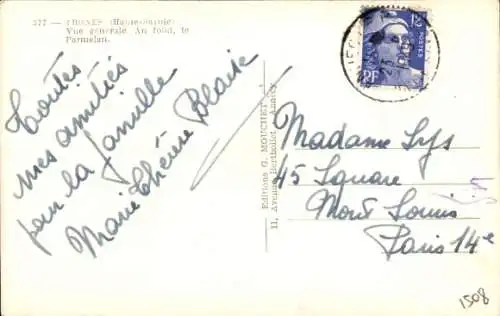 377 — THONES (Haute-Savoie)
Vue générale Au fond, le
Parmelan.
Toutes
mes amitiés
pour la famille
Marie Thérèse Blaise
Editions G. MOUCHET
11, Avenue Berthollet - Annecy
POSTES
RF
Madame Lys
45 Square
Mont Louis
Paris 14e
1508